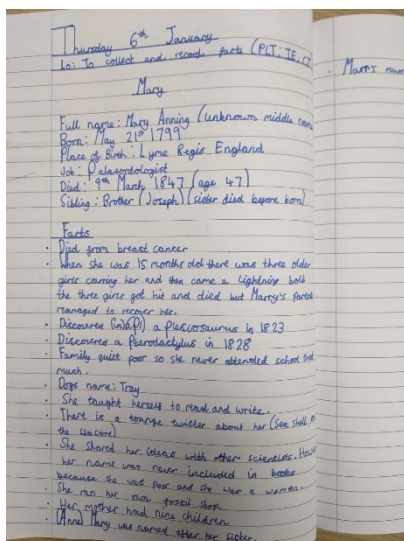 Thursday 6th January
Lo: To collect and record facts (PLT: IE, CT
Mary
Full name: Mary Anning (unknown middle name
Born: May 21st 1799
Place of Birth: Lyme Regis England
Job: Palaeontologist
Died: 9th March 1847 (age 47)
Sibling: Brother (Joseph) (sister died before born)
Facts
· Died from breast cancer
· When she was 15 months old there was three older
girls carring her and then came a lightning bolb
the three girls got hit and died but Marry's parents
managed to recover her.
· Discovered a plesiosaurus in 1823
· Discovered a pterodactylus in 1828
· Family quiet poor so she never attended school that
much.
· Dogs name: Tray
· She taught herself to read and write.
· There is a tounge twister about her (Sea shell
the seasore)
· She shared her ideas with other scientists. How
her name was never included in books
because she was poor and she was a woman.
· She ran her own fossil shop.
· Her mother had nine children
· (Anne) Mary was named after her sister.
· Marrs mum